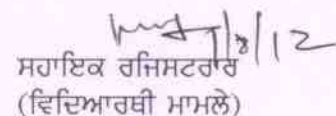 ਸਹਾਇਕ ਰਜਿਸਟਰਾਰ
(ਵਿਦਿਆਰਥੀ ਮਾਮਲੇ)